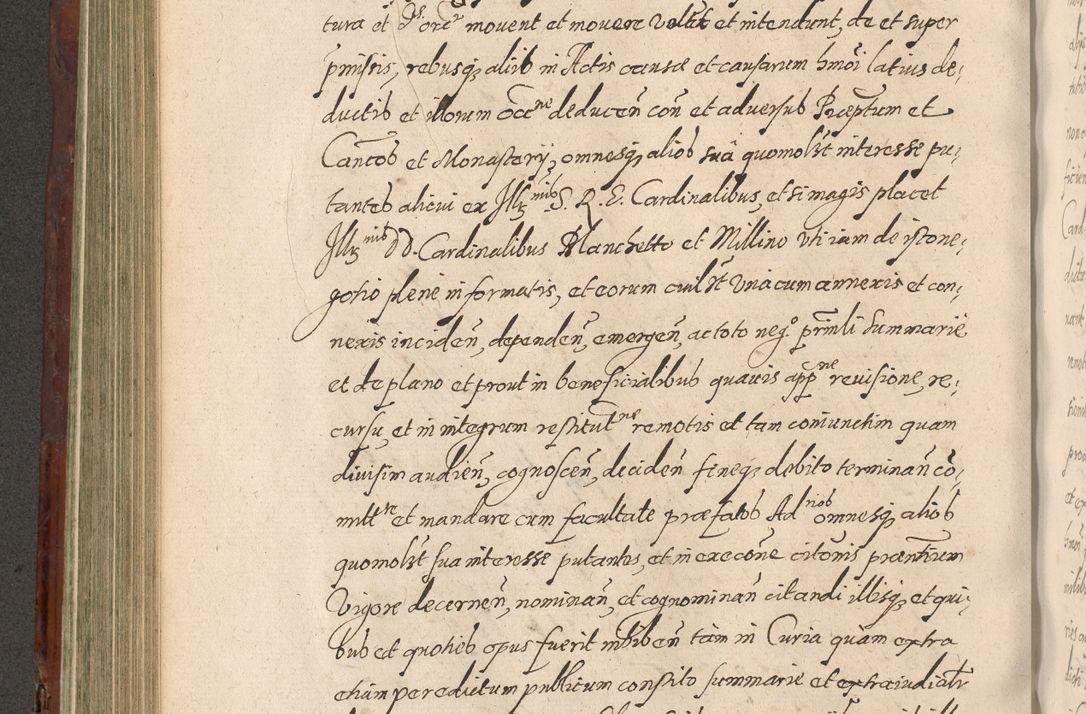 tura et Ds orr movent et movere volunt et intendunt, de et super
pmissis, rebusq3 aliis in Actis causae et causarum hmoi latius de:
ductis et illorum occne deducen con et adversus Praeptum et
Cancos et Monasterij, omnesq3 alios sua quomolt interesse pu:
tantes alicui ex Illmis S. R. E. Cardinalibus, et si magis placet
Illmis DD. Cardinalibus Planchetto et Millino uti iam de isto ne:
gotio plene informatis, et eorum cuilt una cum annexis et con:
nexis inciden, dependen, emergen, ac toto nego prnli summarie
et de plano et prout in beneficialibus quavis appne revisione, re:
cursu, et in integrum restitutne remotis et tam coniunctim quam
divisim audien, cognoscen, deciden fineq3 debito terminan co:
mittre et mandare cum facultate praefatos Adrios omnesq3 alios
quomolt sua interesse putantes, et in execone citonis praentium
vigore decernen, nominan, et cognominan citandi illisq3 et qui:
bus et quoties opus fuerit inhiben tam in Curia quam extra
etiam per edictum publicum constito summarie et extraiudialr